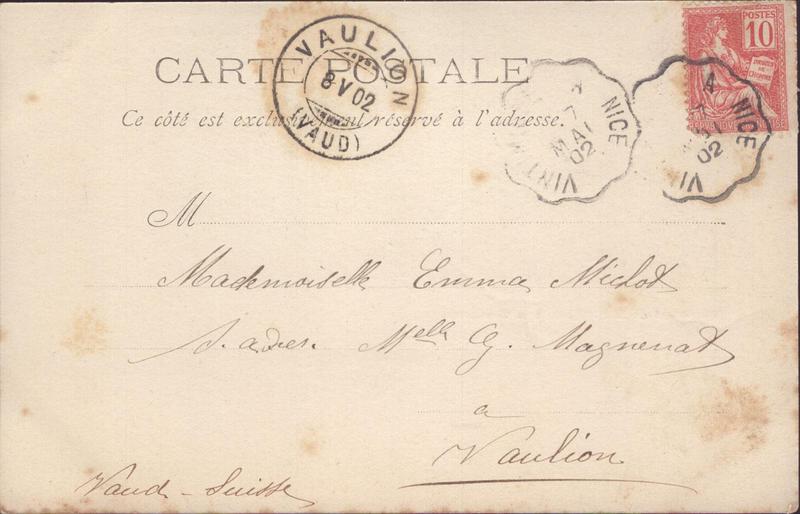 CARTE POSTALE
Ce côté est exclusivement réservé à l'adresse.
VAULION
8 V 02
(VAUD)
NICE
7
MAI
02
VINT
A NICE
02
VIN
POSTES
10
M
Mademoiselle Emma Michot
S. adres. Melle G. Magnenat
à
Vaulion
Vaud - Suisse